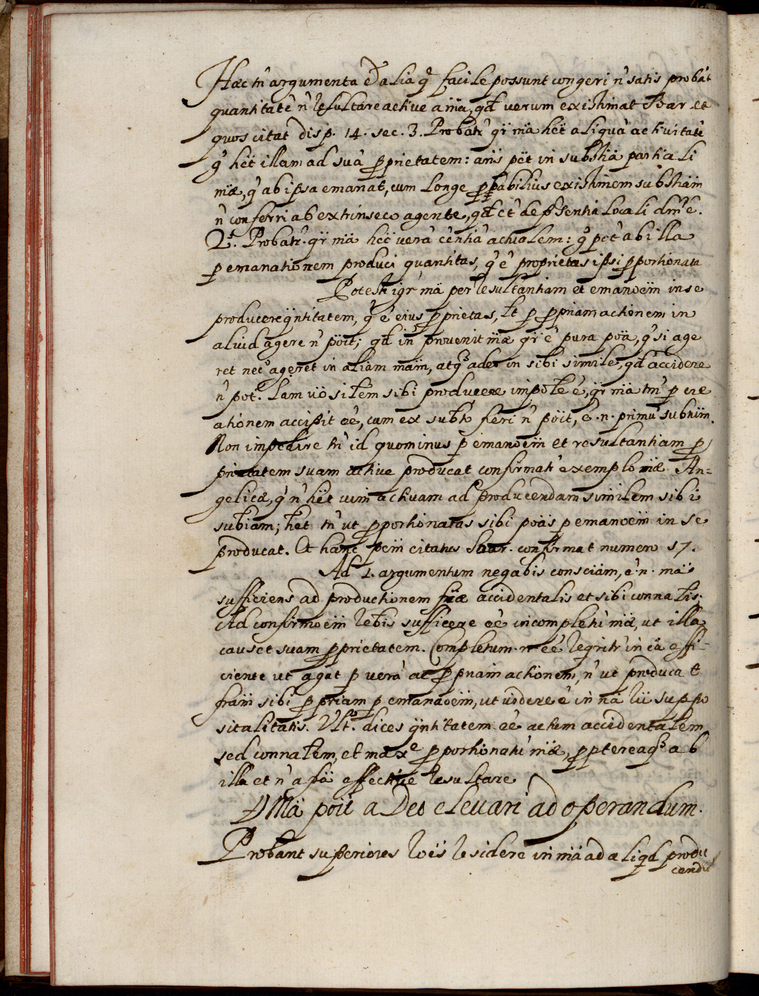 Hæc tñ argumenta & alia q̃ facile possunt congeri ñ satis probãt
quantitatẽ ñ resultare active a mã, qđ verum existimat Suar et
quos citat disp. 14. sec. 3. Probatr̃ qr̃ mã hẽt aliquã activitatẽ
q̃ hẽt illam ad suã p̃prietatem: añs pẽt in subs̃tia partiali
mæ, q̃ ab ipsa emanat, cum longe p̃babilius existimem subs̃tiam
ñ conferri ab extrinseco agente, qđ
2.º Probatr̃. qr̃ mã hẽt verã ẽntiã actualem: g̃ põt ab illa
p emanationem produci quantitas, q̃ ẽ proprietas ipsi p̃portionata
Potest igr̃ mã per resultantiam et emanoẽm in se
producere q̃ntitatem, q̃ ẽ eius p̃prietas, lt p p̃priam actionem in
aliud agere ñ põit; qđ inde provenit mæ qr̃ ẽ pura põa, q̃ si age
ret nec ageret in aliam mãm, atq̃ adeo in sibi simile, qđ accidere
ñ pot. Iam võ silem sibi producere impõle ẽ, qr̃ mã tm̃ p cre
ationem accipit eẽ, cum ex subto fieri ñ põit, ẽ. n. primũ subtũm.
Non impedire tñ id quominus p emanoẽm et resultantiam p̃
prietatem suam active producat confirmatr̃ exemplo mæ An=
gelicæ, q̃ ñ hẽt vim activam ad producendam similem sibi
subs̃tiam; hẽt tñ ut p̃portionatas sibi põas p emanoẽm in se
producat. Et hanc pẽm citatus Suar. confirmat numero 17.
Ad 1. argumentum negabis consc̃iam, ẽ. n. mã
sufficiens ad productionem fræ accidentalis et sibi connatlis.
Ad confirmoẽm rebis sufficere eẽ incompletũ mã, ut illa
causet suam p̃prietatem. Completum. n. eẽ reqritr̃ in cã effi-
ciente ut agat p verã ac p̃priam actionem, ñ ut producat
frãm sibi p̃priam p emanaoẽm, ut videre ẽ in
sitalitatis. Ult.º dices q̃ntitatem eẽ actum accidentalem,
sed connatlem, et maxe p̃portionatũ mæ, p̃ptereaq̃ ab
illa et ñ a frã effective resultare
Mã põit a Deo elevari ad operandum.
Probant superiores rões residere in mã ad aliqd produ
cendũ